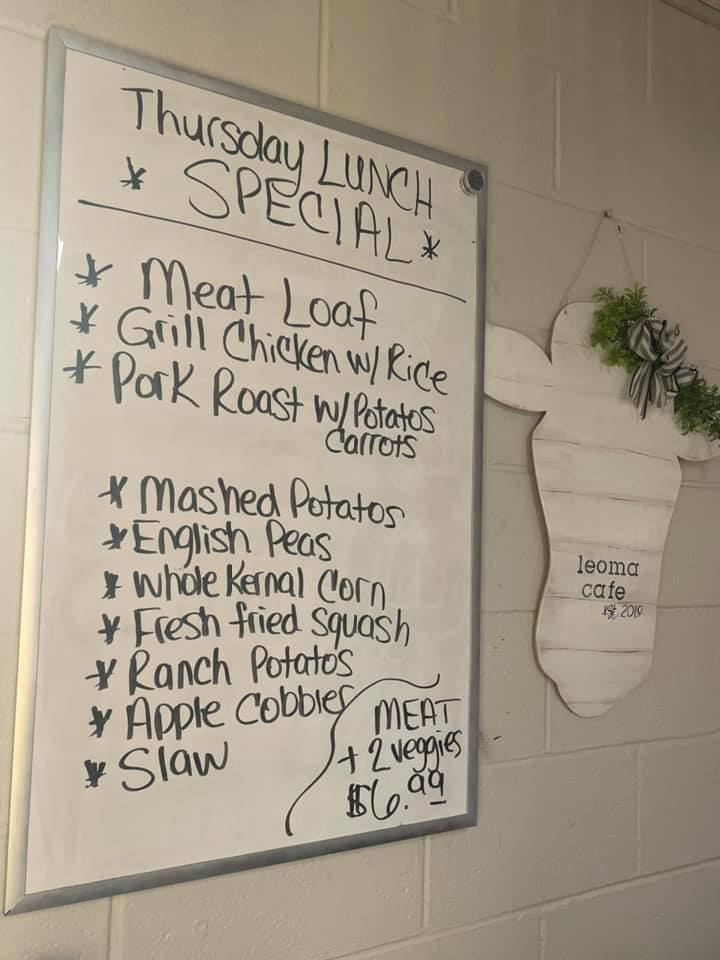 Thursday LUNCH
* SPECIAL *
* Meat Loaf
* Grill Chicken w/ Rice
* Pork Roast w/ Potatos
Carrots
* Mashed Potatos
* English Peas
* Whole Kernal Corn
* Fresh fried Squash
* Ranch Potatos
* Apple Cobbler
* Slaw
MEAT
+ 2 veggies
$6.99
leoma
cafe
est 2019